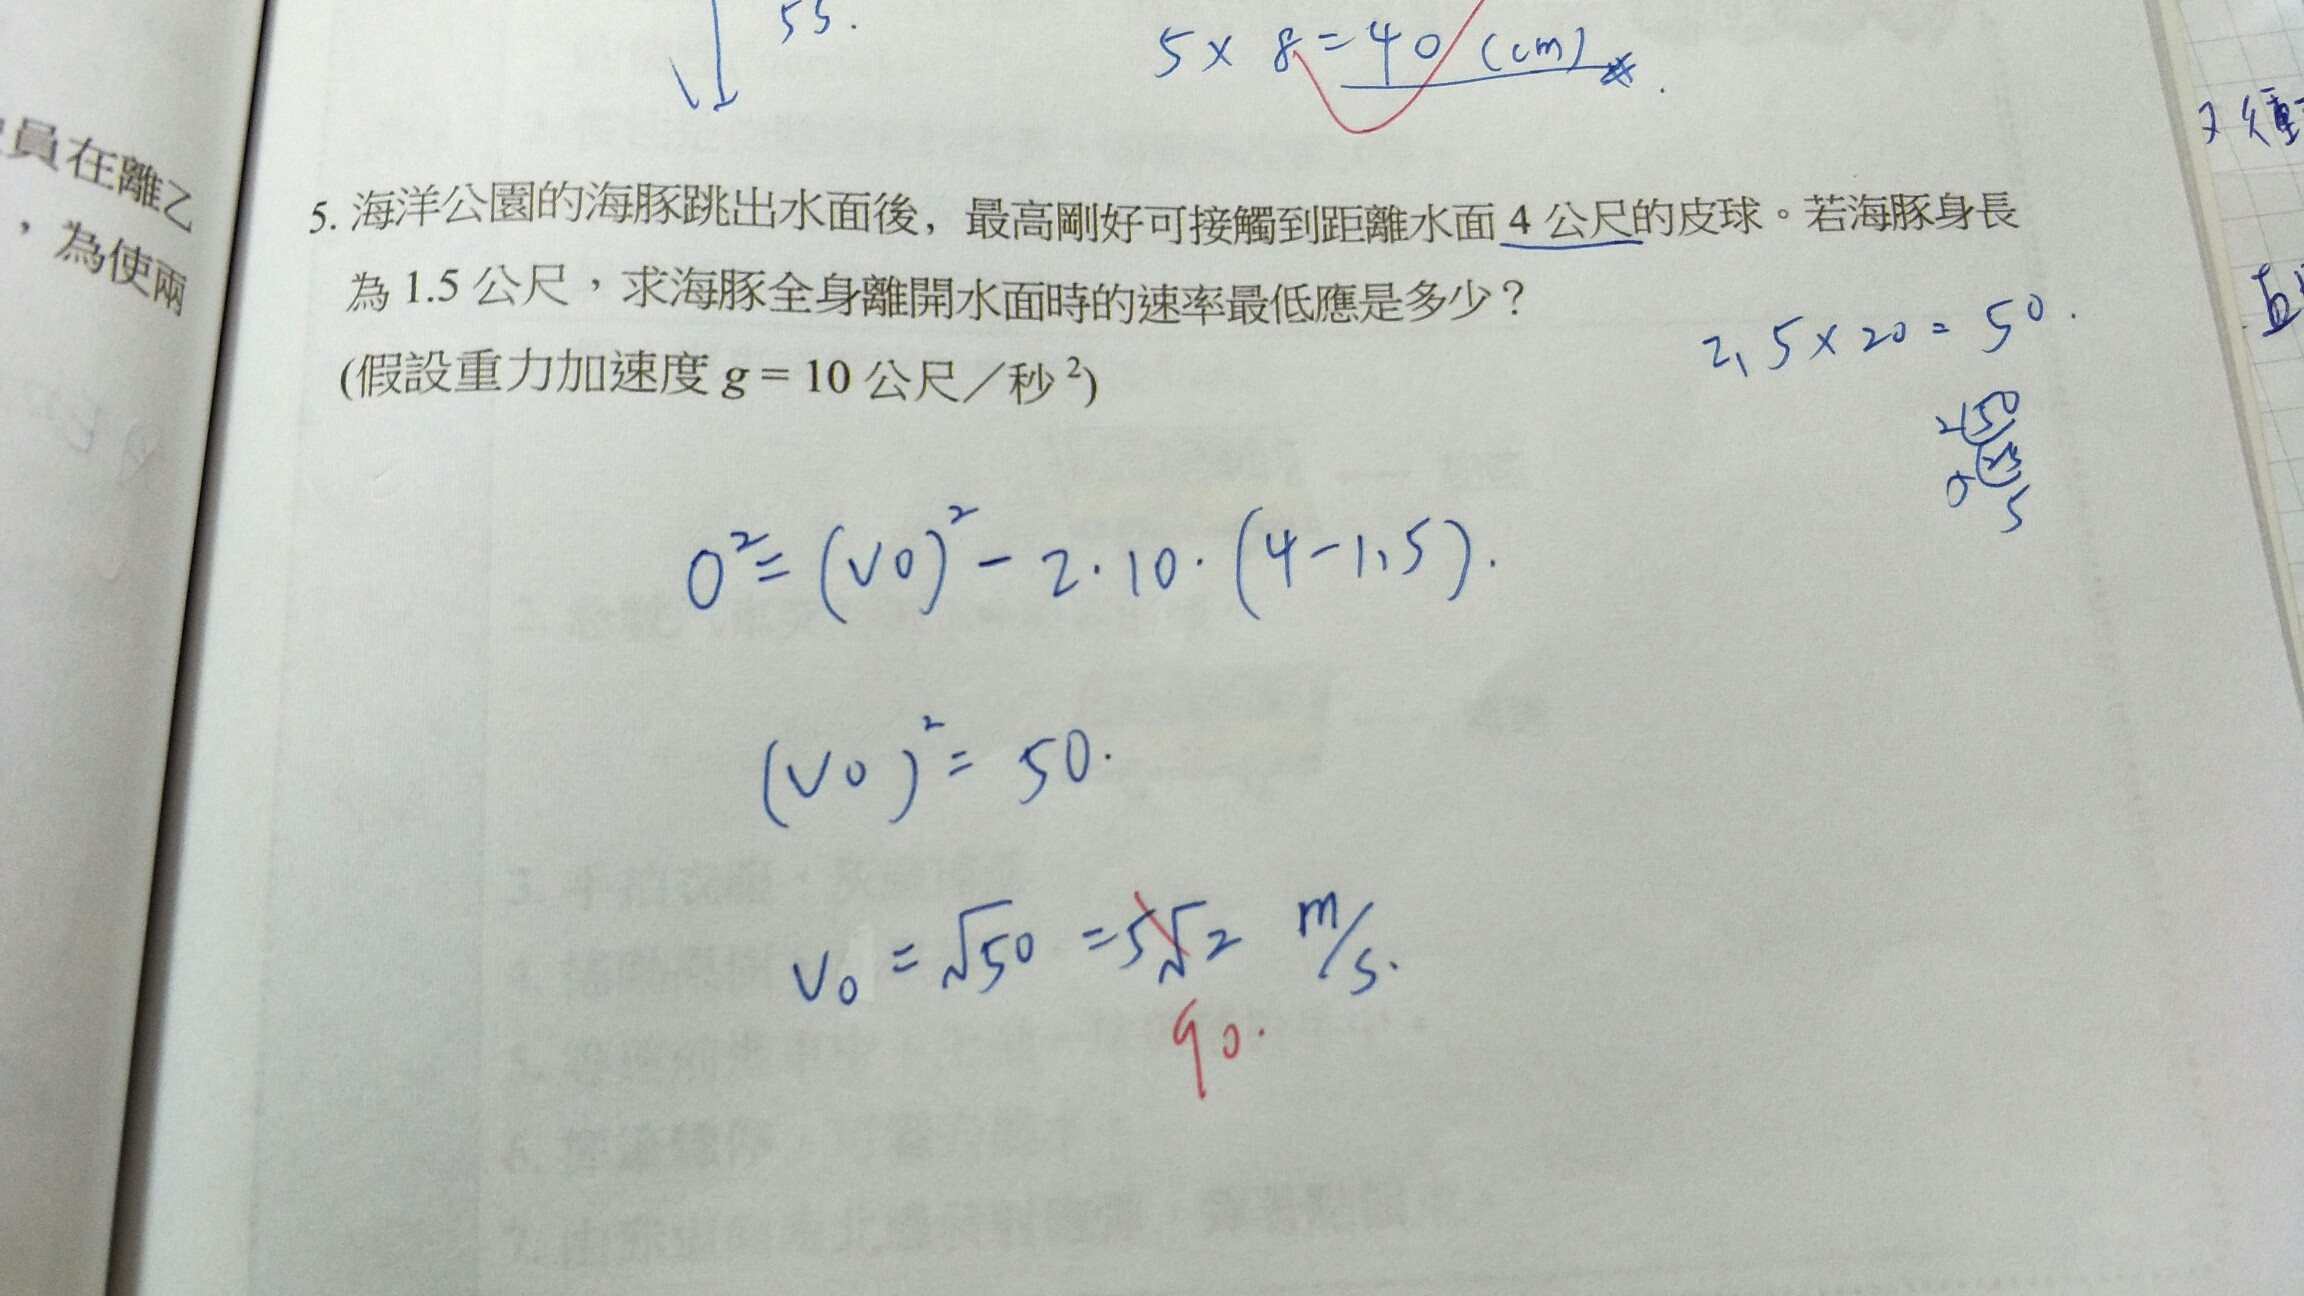 55.
5 × 8 = 40 (cm)
員在離乙
，為使兩
5. 海洋公園的海豚跳出水面後，最高剛好可接觸到距離水面 4 公尺的皮球。若海豚身長
為 1.5 公尺，求海豚全身離開水面時的速率最低應是多少？
(假設重力加速度 g = 10 公尺／秒²)
2.5 × 20 = 50.
2 50
5
0² = (V0)² - 2·10·(4-1.5).
(V0)² = 50.
V0 = √50 = 5√2 m/s.
90.